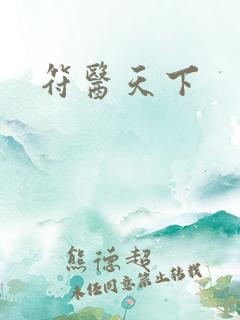 符醫天下
熊德超
未任同意禁止转载